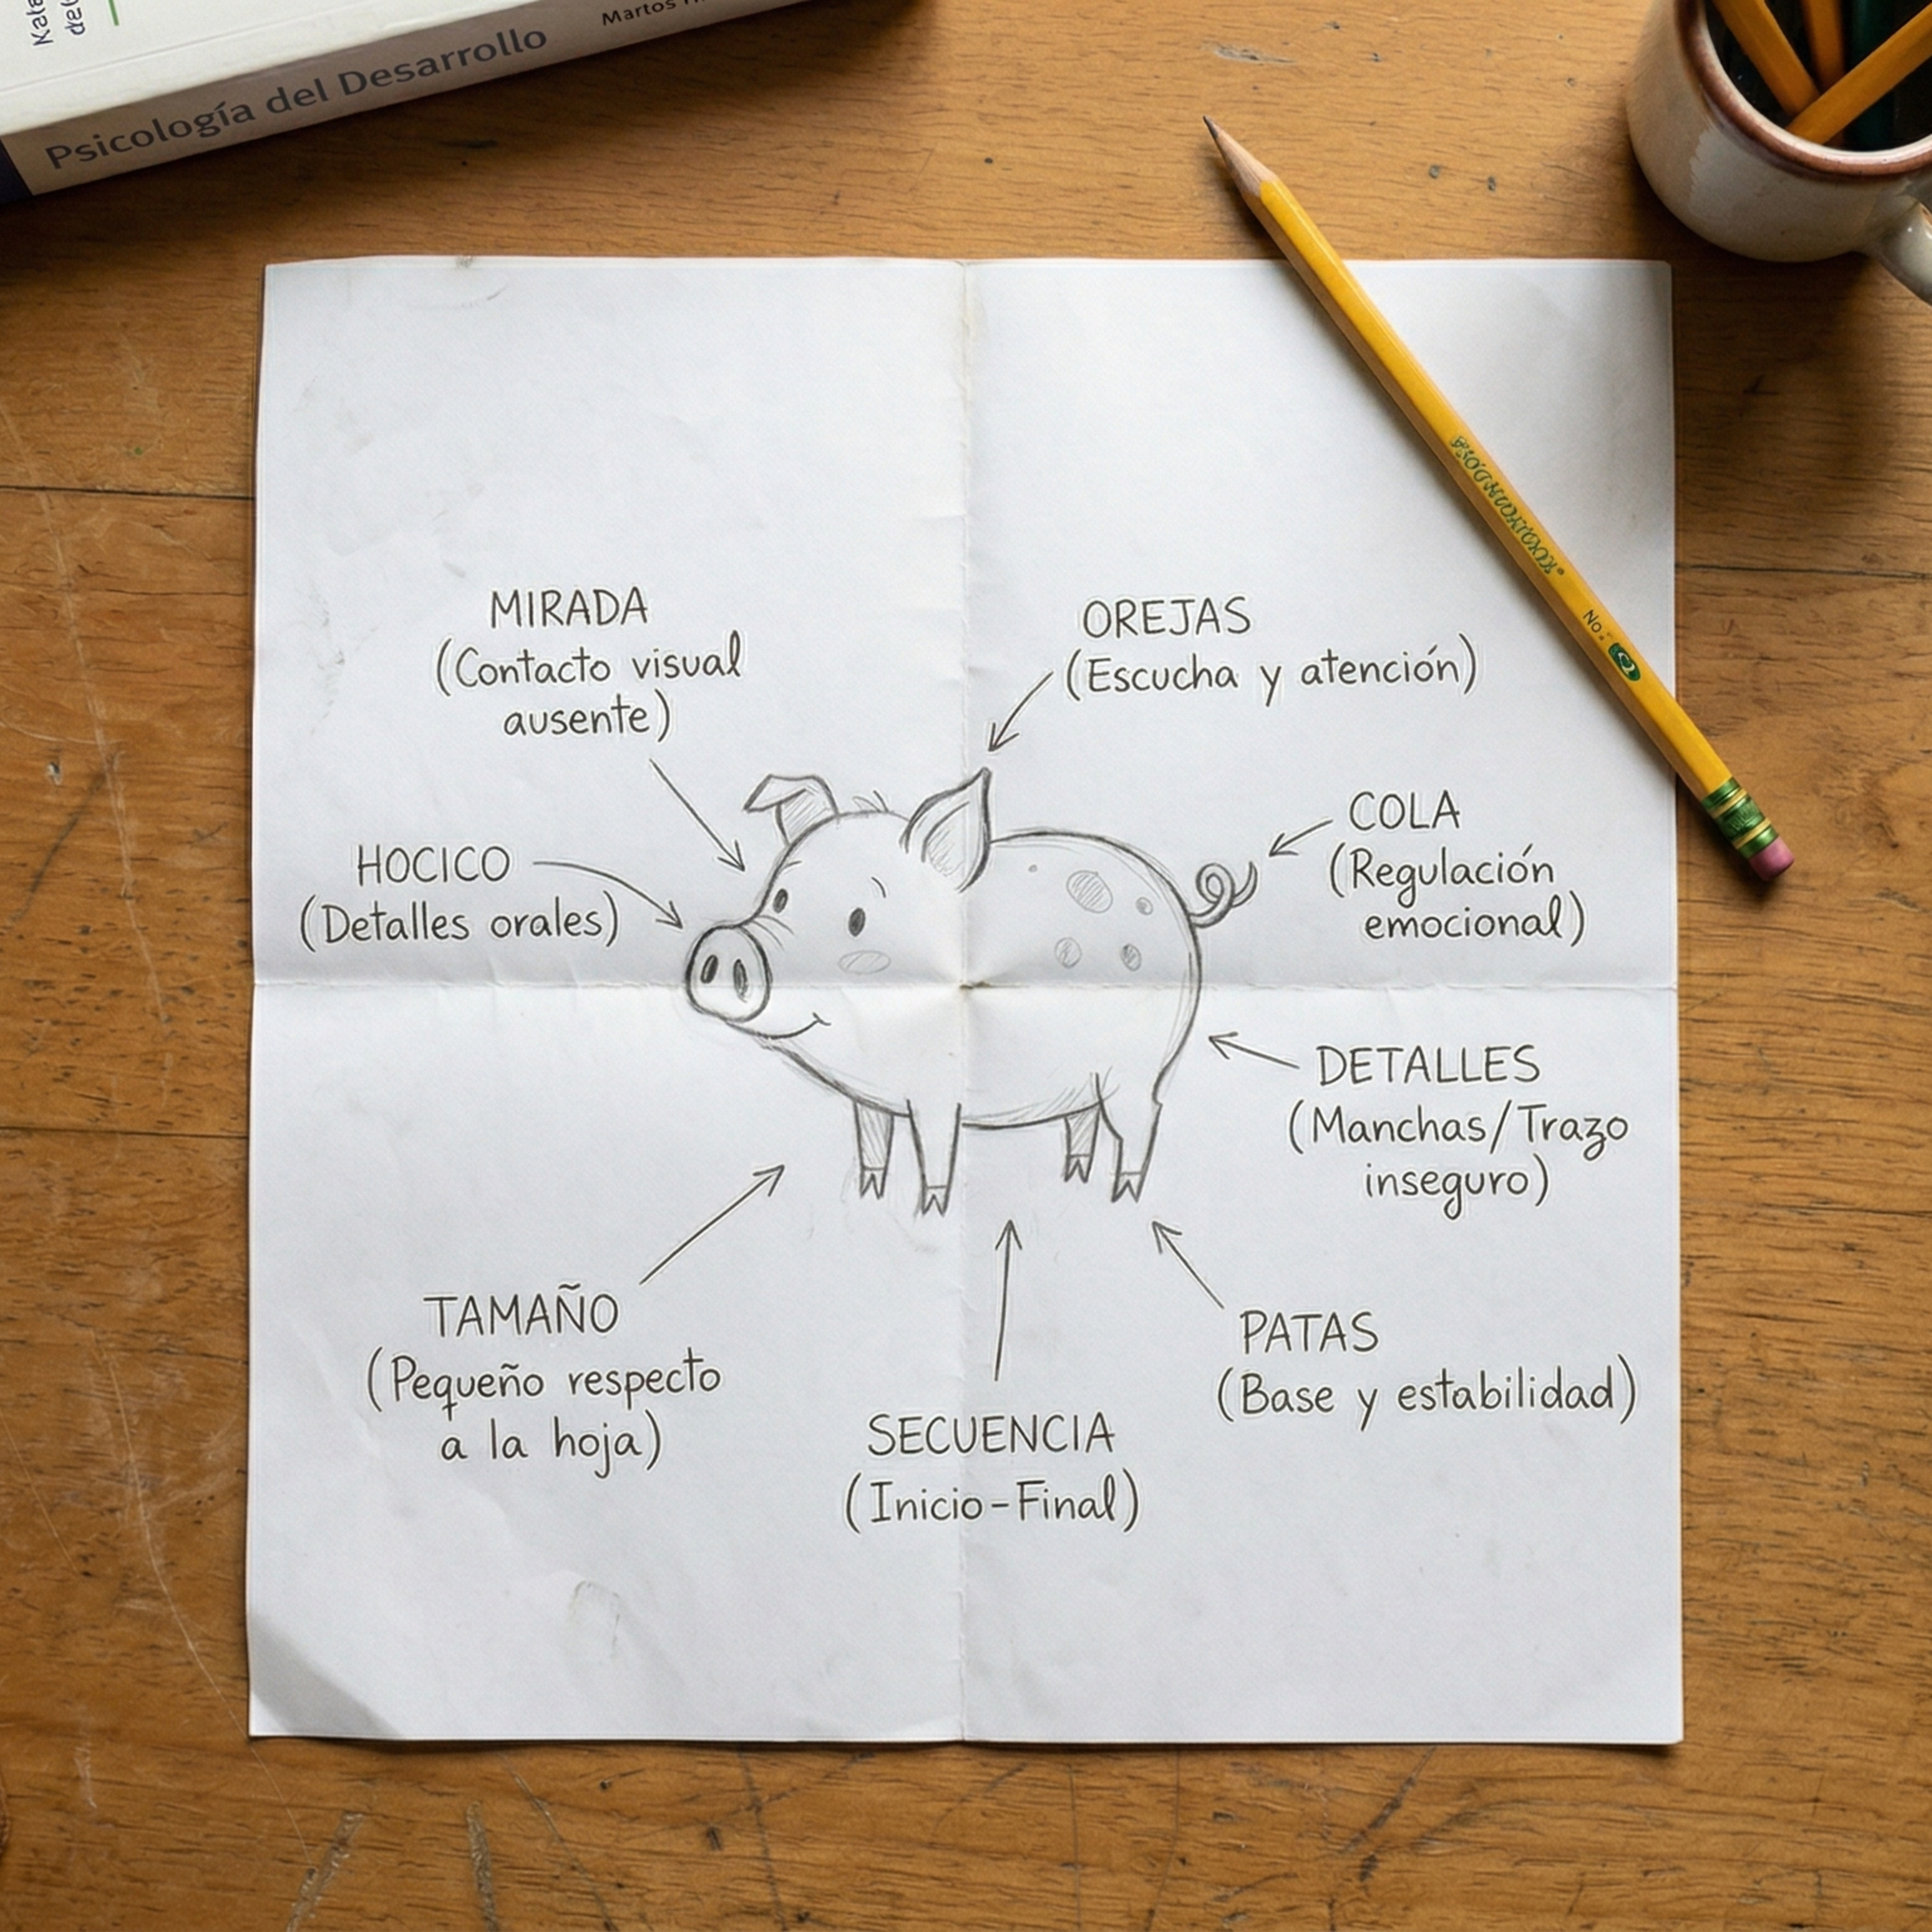 Psicología del Desarrollo
MIRADA
(Contacto visual
ausente)
OREJAS
(Escucha y atención)
HOCICO
(Detalles orales)
COLA
(Regulación
emocional)
DETALLES
(Manchas/Trazo
inseguro)
TAMAÑO
(Pequeño respecto
a la hoja)
PATAS
(Base y estabilidad)
SECUENCIA
(Inicio-Final)
No.